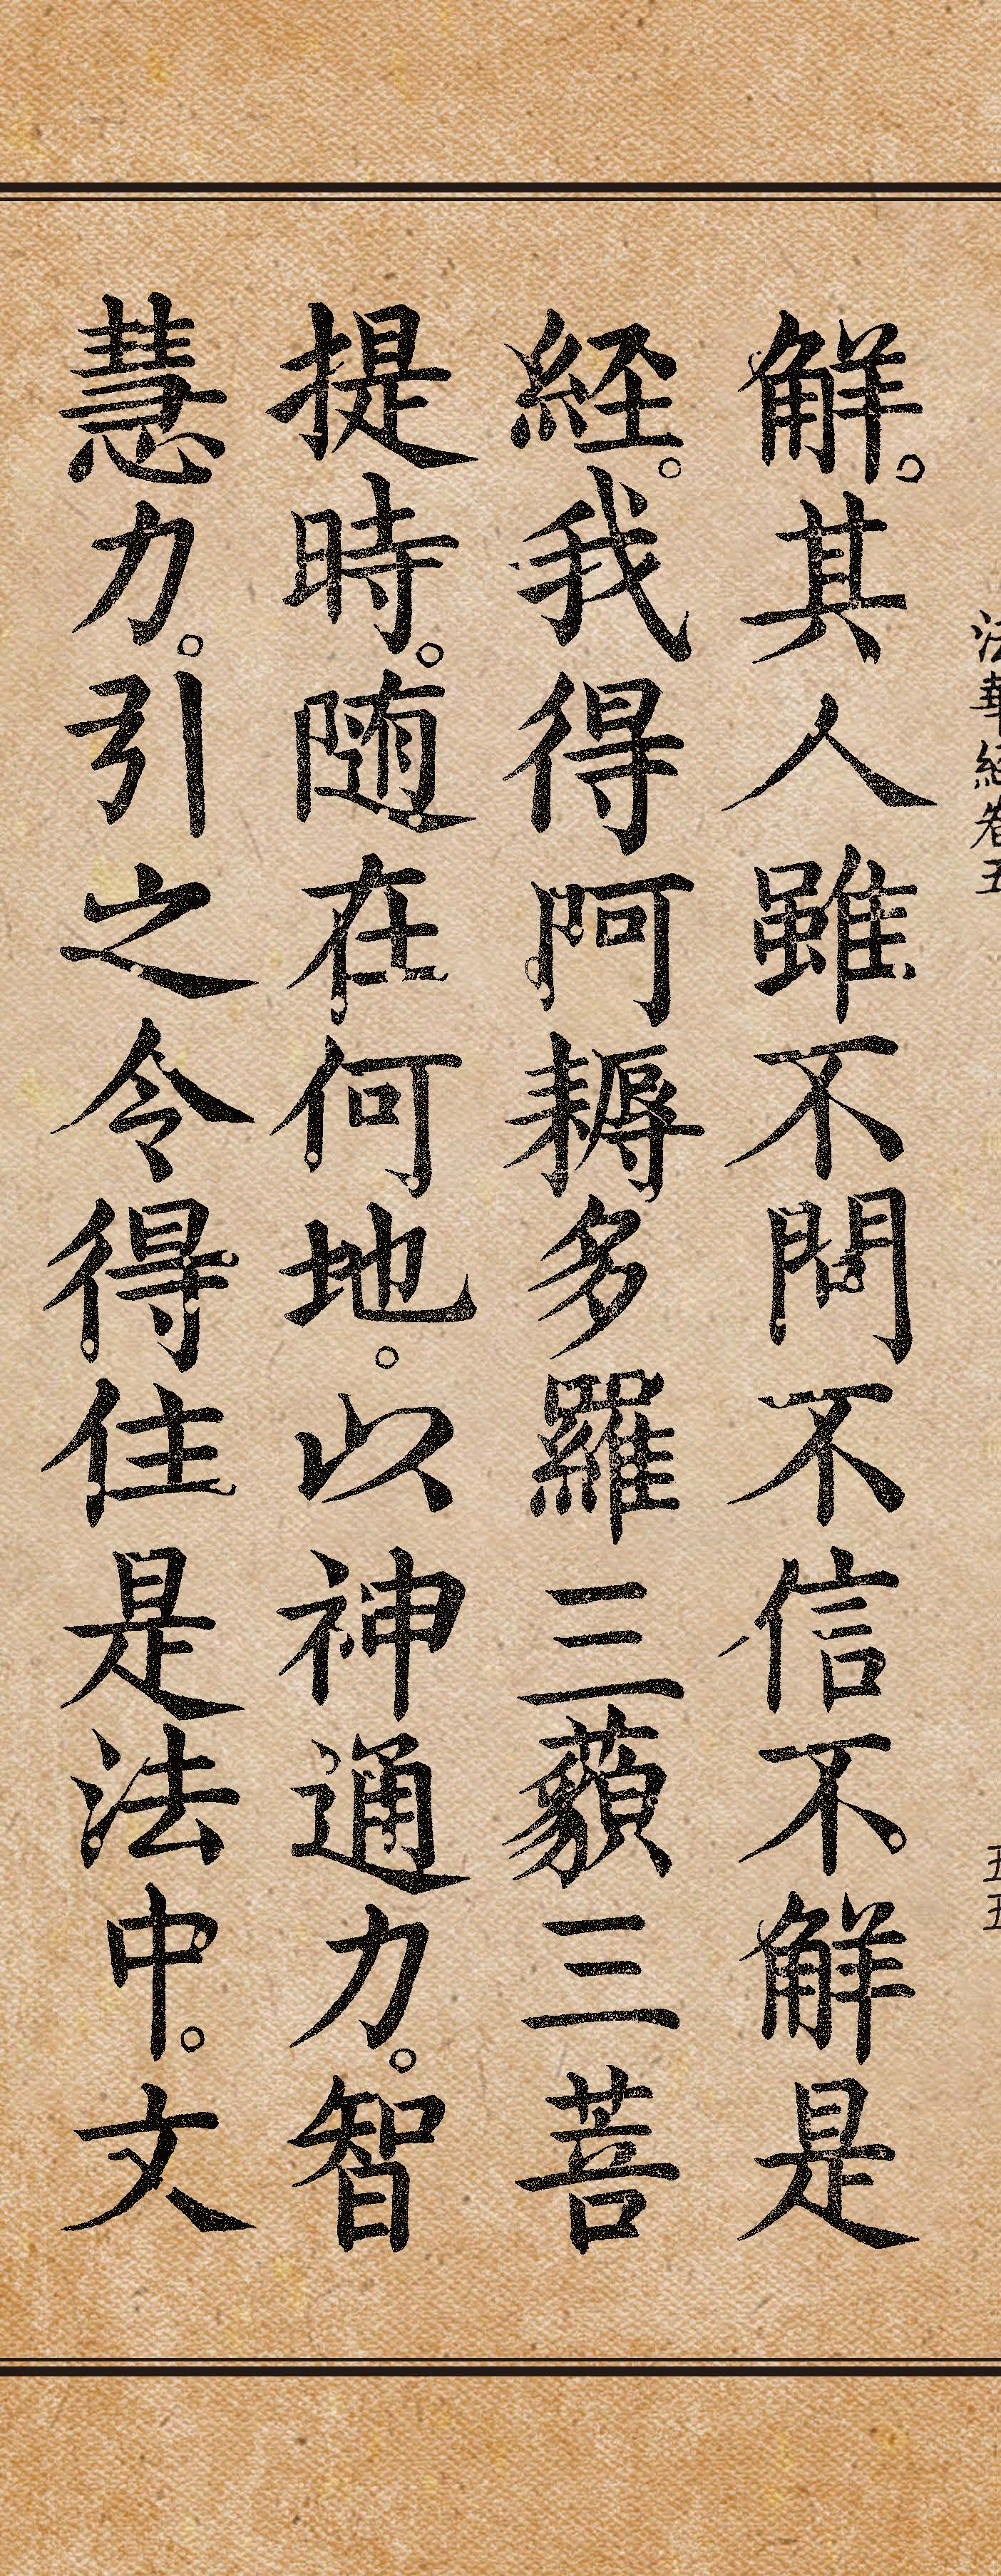 法華經卷五
五五
解。其人雖不問不信不解是
経。我得阿耨多羅三藐三菩
提時。随在何地。以神通力。智
慧力。引之令得住是法中。文